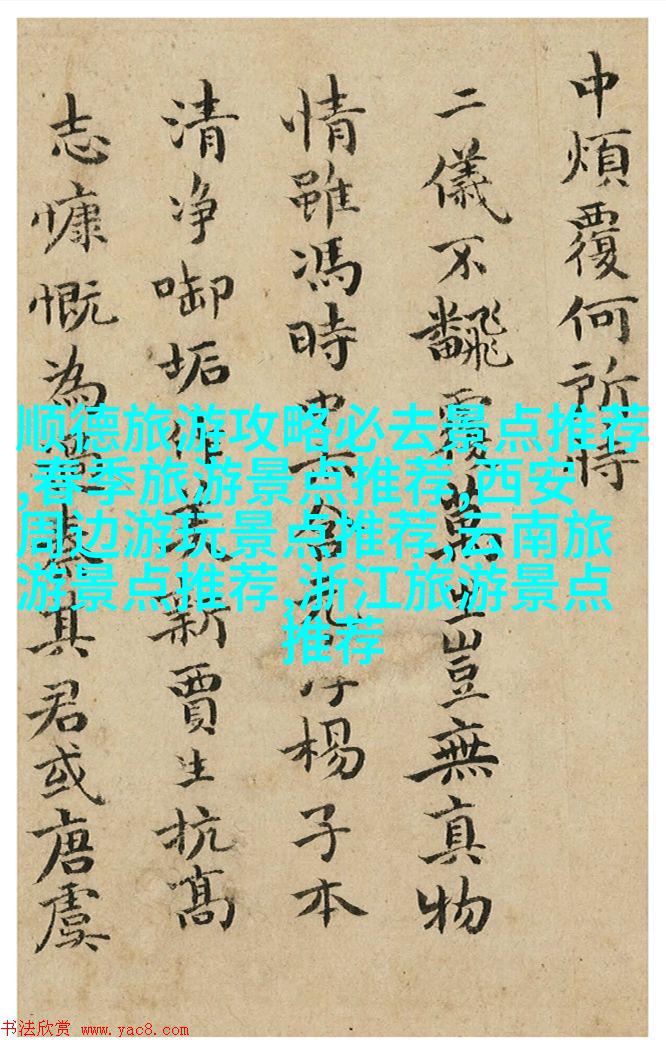 中煩覆何所恃
二儀不飜覆萬生豈無真物
情雖馮時楊子本
清净啣垢作美新賈生抗高
志慷慨為其君或唐虞
顺德旅游攻略必去景点推荐
,春季旅游景点推荐,西安
周边游玩景点推荐,云南旅
游景点推荐,浙江旅游景点
推荐
书法欣赏 www.yac8.com